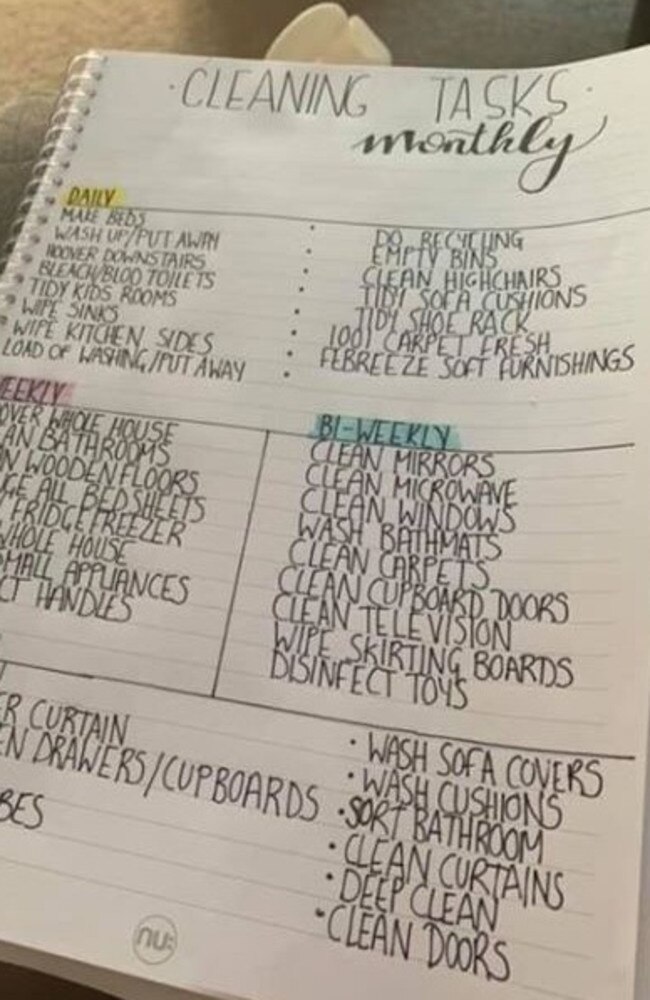 · CLEANING TASKS ·
monthly
DAILY
MAKE BEDS
WASH UP/PUT AWAY
HOOVER DOWNSTAIRS
BLEACH/BLOO TOILETS
TIDY KIDS ROOMS
WIPE SINKS
WIPE KITCHEN SIDES
LOAD OF WASHING/PUT AWAY
· DO RECYCLING
· EMPTY BINS
· CLEAN HIGHCHAIRS
· TIDY SOFA CUSHIONS
· TIDY SHOE RACK
· 1001 CARPET FRESH
· FEBREEZE SOFT FURNISHINGS
EEKLY
OVER WHOLE HOUSE
AN BATHROOMS
N WOODEN FLOORS
GE ALL BEDSHEETS
FRIDGE FREEZER
WHOLE HOUSE
MALL APPLIANCES
CT HANDLES
BI-WEEKLY
CLEAN MIRRORS
CLEAN MICROWAVE
CLEAN WINDOWS
WASH BATHMATS
CLEAN CARPETS
CLEAN CUPBOARD DOORS
CLEAN TELEVISION
WIPE SKIRTING BOARDS
DISINFECT TOYS
R CURTAIN
EN DRAWERS/CUPBOARDS
BES
· WASH SOFA COVERS
· WASH CUSHIONS
· SORT BATHROOM
· CLEAN CURTAINS
· DEEP CLEAN
· CLEAN DOORS
nu: